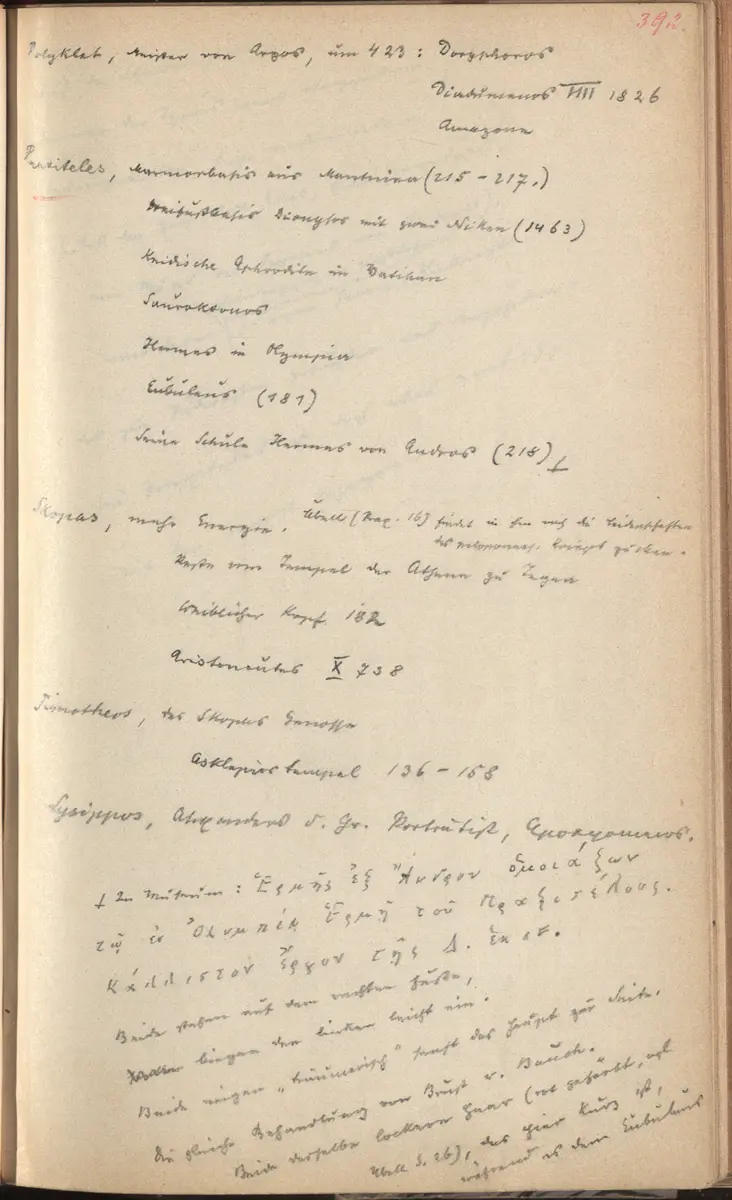 392.
Polyklet, Meister von Argos, um 423: Doryphoros
Diadumenos VIII 1826
Amazone
Praxiteles, Marmorbasis aus Mantinea (215 – 217.)
Dreifußbasis Dionysos mit zwei Niken (1463)
Knidische Aphrodite im Vatikan
Sauroktonos
Hermes in Olympia
Eubuleus (181)
Seine Schule Hermes von Andros (218) ⸸
Skopas, mehr Energie. Übell (Prax. 16) findet in ihm noch die Leidenschaften
des peloponnes. Krieges zucken.
Reste vom Tempel der Athena zu Tegea
Weiblicher Kopf 182
Aristonautes X 738
Timotheos, des Skopas Genosse
Asklepiostempel 136 – 158
Lysippos, Alexanders d. Gr. Porträtist, Apoxyomenos.
⸸ Im Museum: Ἑρμῆς ἐξ Ἄνδρου ὁμοιάζων
τῷ ἐν Ὀλυμπίᾳ Ἑρμῇ τοῦ Πραξιτέλους.
Κάλλιστον ἔργον τῆς Δ. ἑκ.
Beide stehen auf dem rechten Fuße,
biegen den linken leicht ein.
Beide neigen „träumerisch" sanft das Haupt zur Seite.
Die gleiche Behandlung von Brust u. Bauch.
Beide dasselbe lockere Haar (rot gefärbt, vgl
Übell S. 26), das hier kurz ist,
während es dem Eubuleus